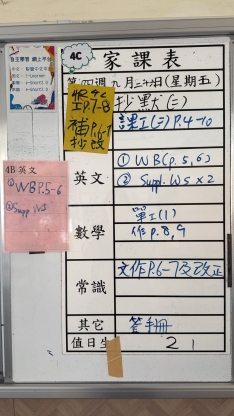 自主學習 網上平台
4C
家課表
第四週 九月三十日(星期五)
P.7-8
抄默(二)
補P.6-7
課工(二)P.4-10
英文
① WB(P.5,6)
② Suppl. WS x 2
4B 英文
① WB P.5-6
② Suppl. WS
數學
單工(1)
作P.8,9
常識
文作P.6-7及改正
其它
簽手冊
值日生
21